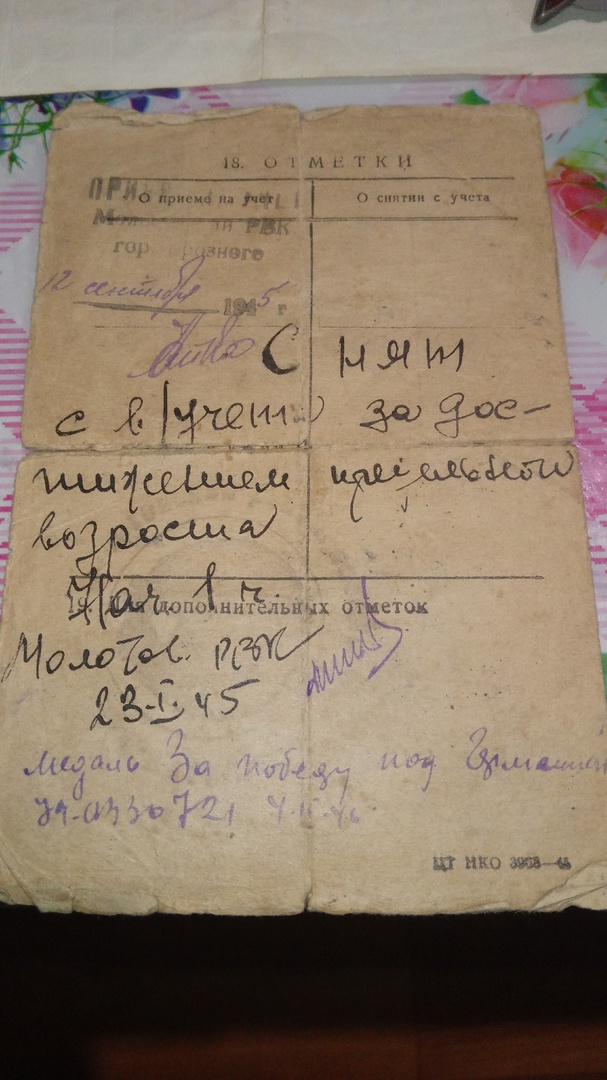 18. ОТМЕТКИ
О приеме на учет
О снятии с учета
РВК
гор.
12 сентября 1945 г
Снят
с в/учета за дос-
тижением предельного
возроста
Нач. 1 ч.
19. Для дополнительных отметок
Молотов. РВК
23-I-45
медаль За победу над
0330721
ЦТ НКО